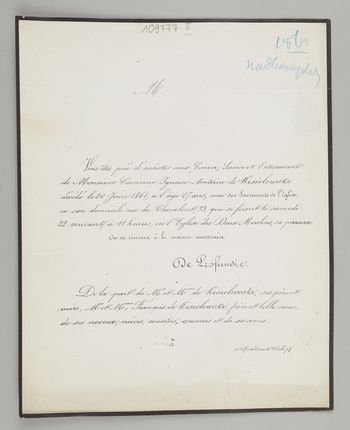 109777 II
M
Vous êtes prié d'assister aux Convoi, Service et Enterrement
de Monsieur Casimir Ignace Antoine de Kisielewski
décédé le 20 Juin 1861, à l'âge 27 ans, muni des Sacrements de l'Eglise,
en son domicile rue du Chevaleret, 33, qui se feront le samedi
22 courant, à 11 heures, en l'Eglise des Deux Moulins, sa paroisse.
On se réunira à la maison mortuaire
De Profundis.
De la part de Mr et Mme de Kisielewski, ses père et
mère, Mr et Mme François de Kisielewski, frère et belle sœur,
de ses neveux, nièces, cousins, cousines et de ses amis.